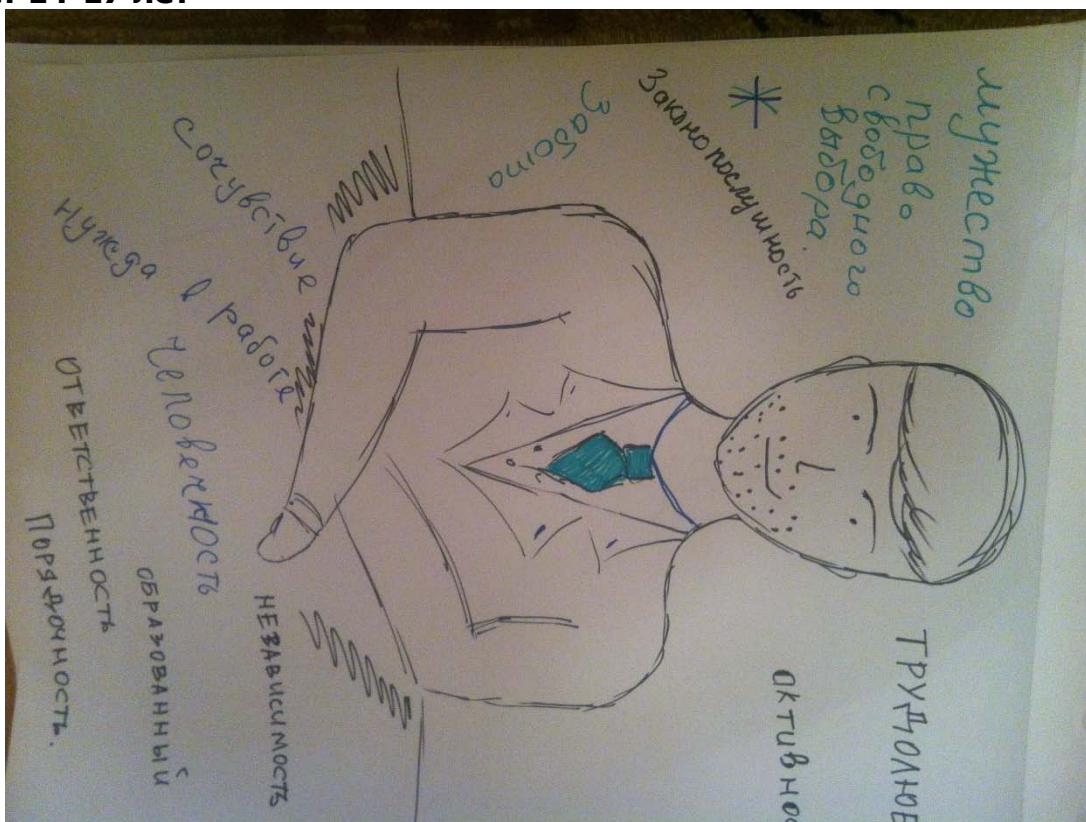 мужество
право
свободного
выбора.
Законопослушность
Забота
сочувствие
нужда в работе
человечность
ОТВЕТСТВЕННОСТЬ
ПОРЯДОЧНОСТЬ.
ОБРАЗОВАННЫЙ
НЕЗАВИСИМОСТЬ
ТРУДОЛЮБ
активнос